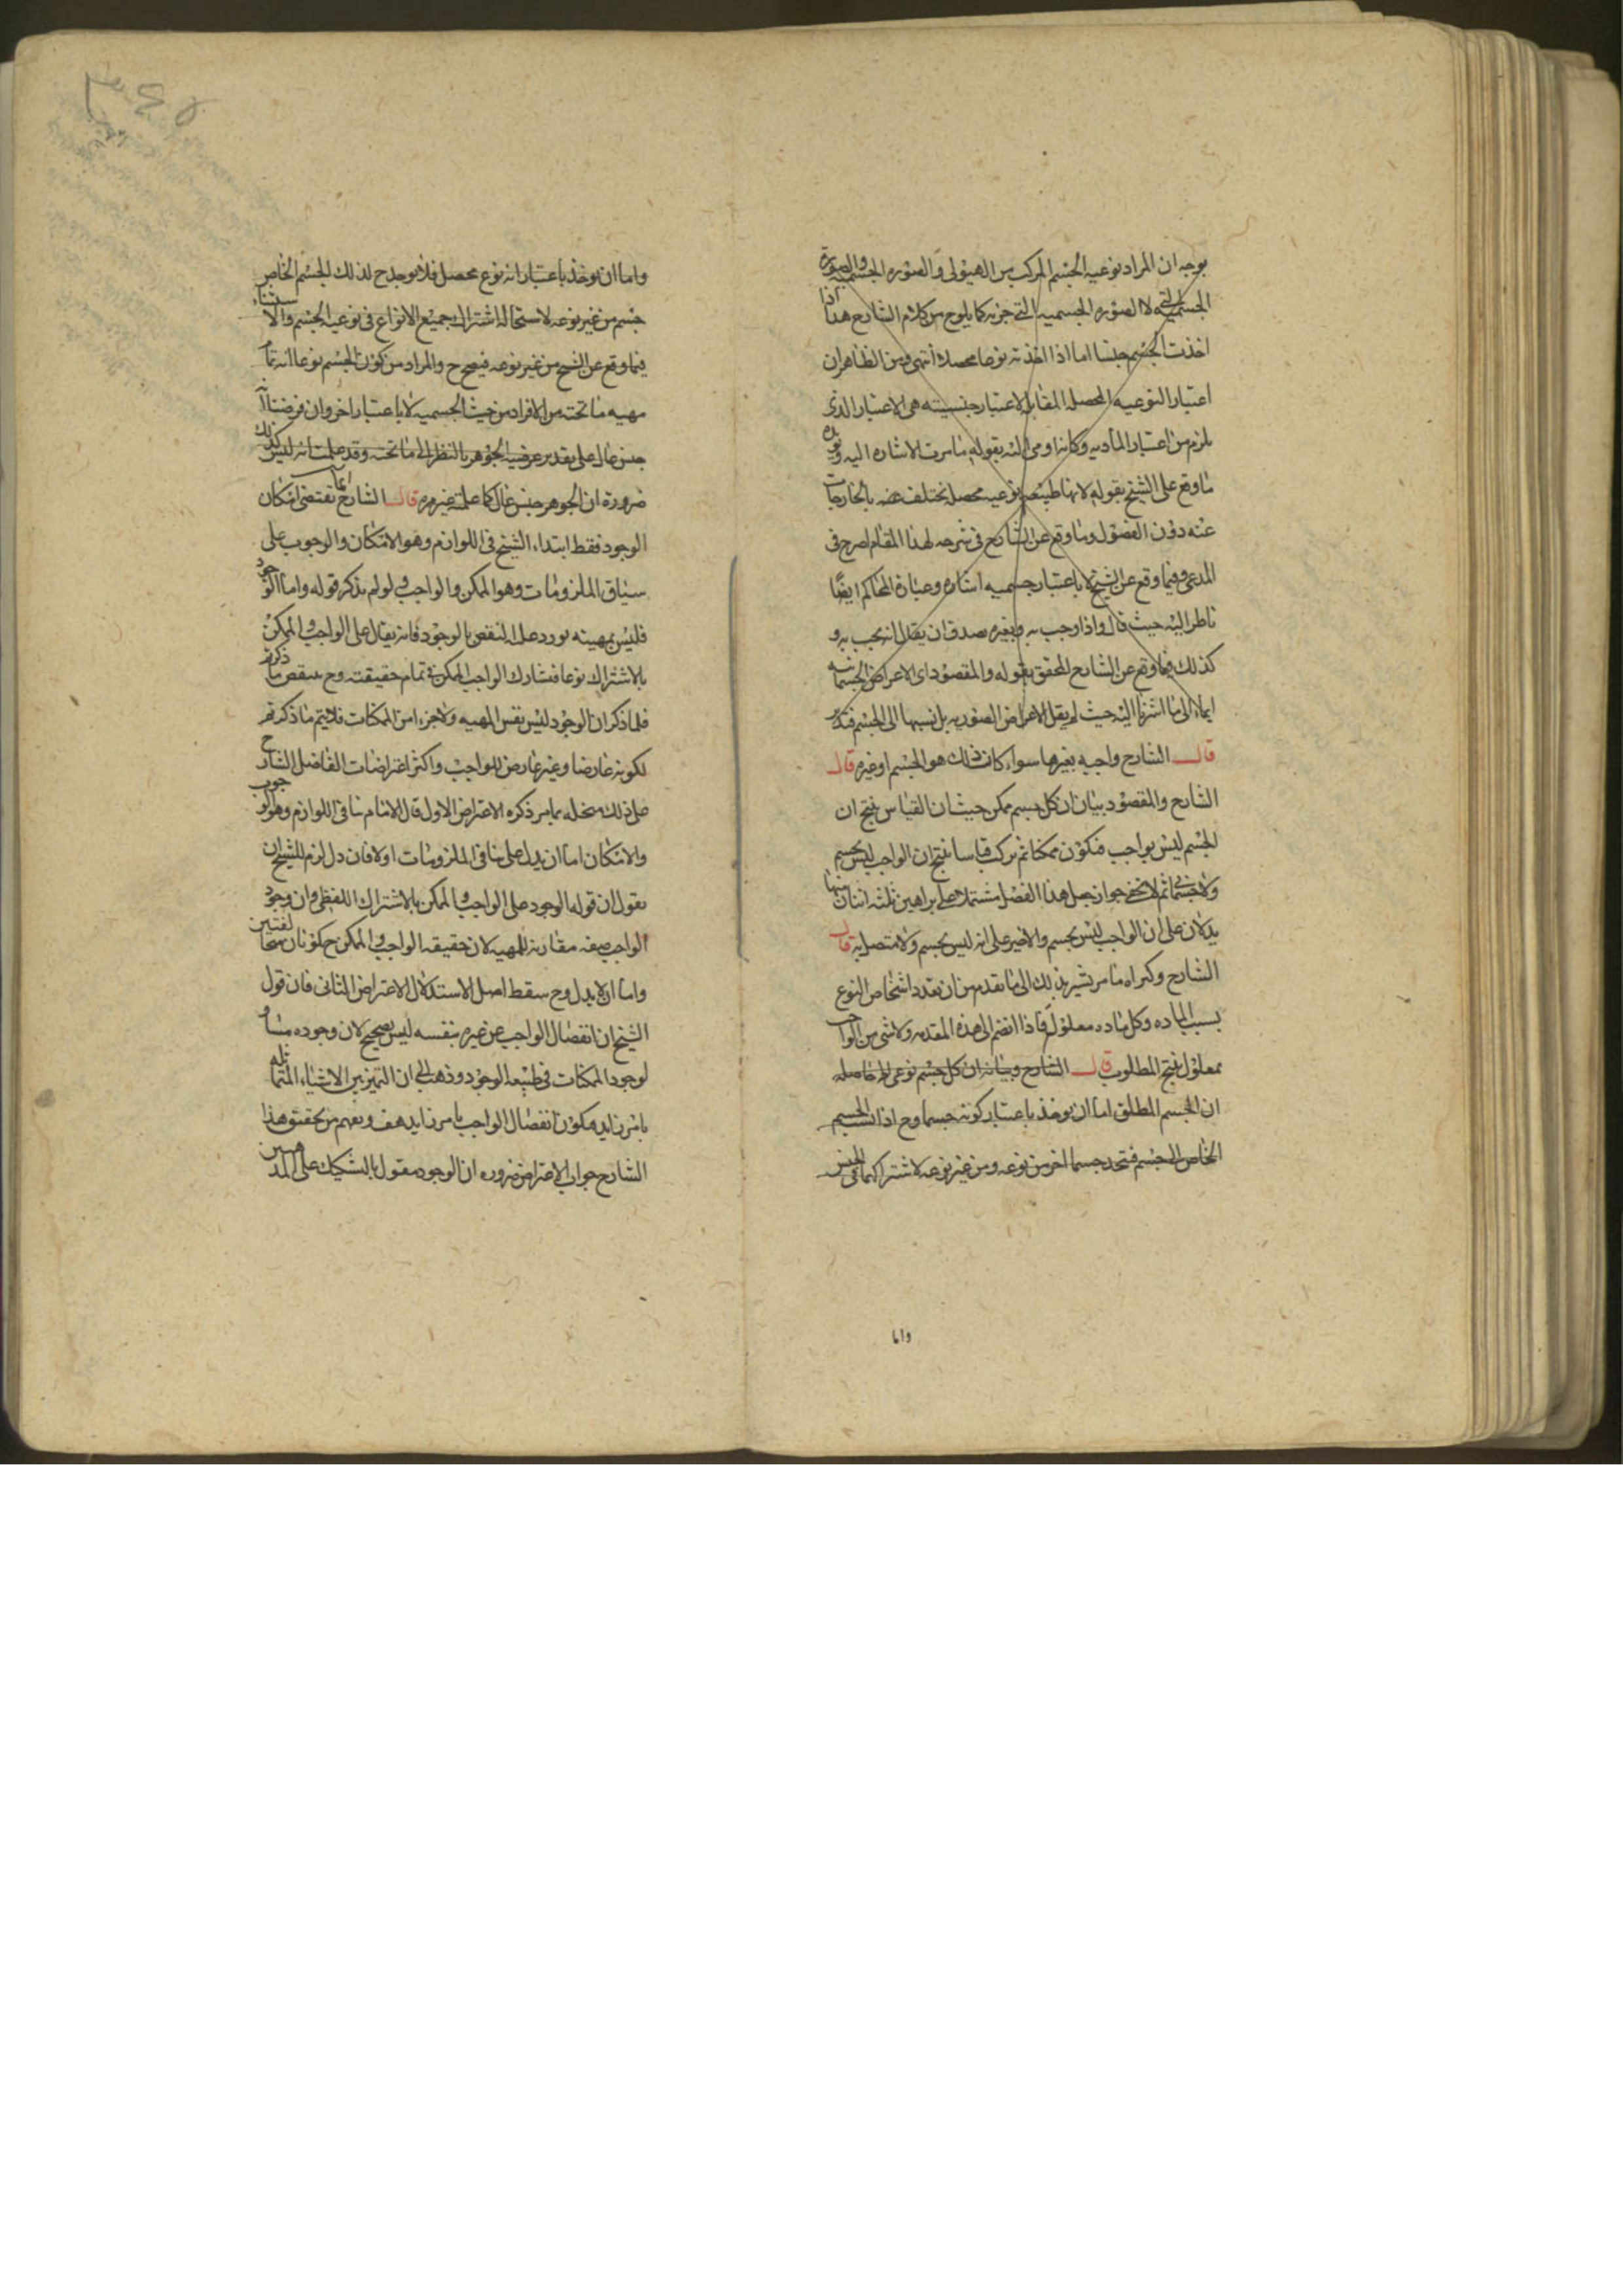 بوجه ان المراد نوعيه الجسم المركب من الهيولى والصوره الجسميه والصورة
الجسمية لا الصوره الجسميه التى جزئه كما يلوح من كلام الشارح هذا اذا
اخذت الجسم جنسا اما اذا اخذته نوعا محصلا انتهى ومن الظاهر ان
اعتبار النوعيه المحصله المقابل لاعتبار جنسيته هى الاعتبار الذى
يلزم من اعتبار المادىه وكانه اومى اليه بقوله ما مرت الاشاره اليه
ما وقع على الشيخ بقوله لانها طبيعه نوعيه محصله تختلف بالخارجات
عنه دون الفصول وما وقع عن الشارح فى شرحه لهذا المقام اصرح فى
المدعى وفيما وقع عن الشيخ لا باعتبار جسميه اشاره وعبارة المحاكم ايضا
ناظر اليه حيث قال واذا وجب به وبغيره صدق ان يقال انه يجب به و
كذلك فيما وقع عن الشارح المحقق بقوله والمقصود اى الاعراض الجسمانيه
ايماء الى ما اشرنا اليه حيث لم يقل الاعراض الصوريه بل نسبها الى الجسم فتدبر
قال الشارح واجبه بغيرها سواء كان ذلك هو الجسم او غيره قال
الشارح والمقصود بيان ان كل جسم ممكن حيث ان القياس ينتج ان
الجسم ليس بواجب فتكون ممكنا ثم نركب قياسا ينتج ان الواجب ليس بجسم
ولا جسمانى ثم لا يخفى جواز جعل هذا الفصل مشتملا على براهين ثلثه اثنان منها
يدلان على ان الواجب ليس بجسم والاخير على انه ليس بجسم ولا متصل به قال
الشارح وكبراه ما مر يشير بذلك الى ما تقدم من ان تعدد اشخاص النوع
بسبب الماده وكل ماده معلول فاذا انضم الى هذه المقدمه ولا شى من الواجب
معلول ينتج المطلوب قال الشارح وبيانه ان كل جسم نوعى الخ حاصله
ان الجسم المطلق اما ان يوخذ باعتبار كونه جسما وح اذا الجسم
الخاص الجسم فتجد جسما اخر من نوعه ومن غير نوعه لاشتراكهما فى الجنس
واما
واما ان يوخذ باعتبار انه نوع محصل فلا يوجد ح لذلك الجسم الخاص
جسم من غير نوعه لاستحاله اشتراك جميع الانواع فى نوعيه الجسم والاستثناء
فيما وقع عن الشيخ من غير نوعه فيصح ح والمراد من كون الجسم نوعا انه تمام
مهيه ما تحته من الافراد من حيث الجسميه لا باعتبار اخر وان فرضنا انه
جنس عال على تقدير عرضيه الجوهر بالنظر الى ما تحته وقد علمت انه ليس كذلك
ضرورة ان الجوهر جنس عال كما علمته غير مره قال الشارح انما يقتضى امكان
الوجود فقط ابتداء الشيخ فى اللوازم وهو الامكان والوجوب على
سياق الملزومات وهو الممكن والواجب ولو لم يذكر قوله واما الوجود
فليس بمهيته يورد عليه النقض بالوجود فانه يقال على الواجب والممكن
بالاشتراك نوعا فشارك الواجب الممكن فى تمام حقيقته وح ينتقض ما ذكرتم
فلما ذكر ان الوجود ليس نفس المهيه ولا جزء من الممكنات فلا يتم ما ذكرتم
لكونه عارضا وغير عارض للواجب واكثر اعتراضات الفاضل الشارح
على ذلك منحله بما مر ذكره الاعتراض الاول قال الامام تنافى اللوازم وهو الوجوب
والامكان اما ان يدل على تنافى الملزومات اولا فان دل لزم للشيخ ان
يقول ان قوله الوجود على الواجب والممكن بالاشتراك اللفظى وان وجود
الواجب صفه مقارنه للمهيه لان حقيقه الواجب والممكن ح تكونان مختلفتين
واما ان لا يدل وح سقط اصل الاستدلال الاعتراض الثانى فان قول
الشيخ ان انفصال الواجب عن غيره بنفسه ليس بصحيح لان وجوده مساو
لوجود الممكنات فى طبيعه الوجود وذهب الى ان التميز بين الاشياء المتماثله
بامر زايد فكون انفصال الواجب بامر زايد هف ويفهم من تحقيق هذا
الشارح جواب الاعتراض ضروره ان الوجود مقول بالتشكيك على